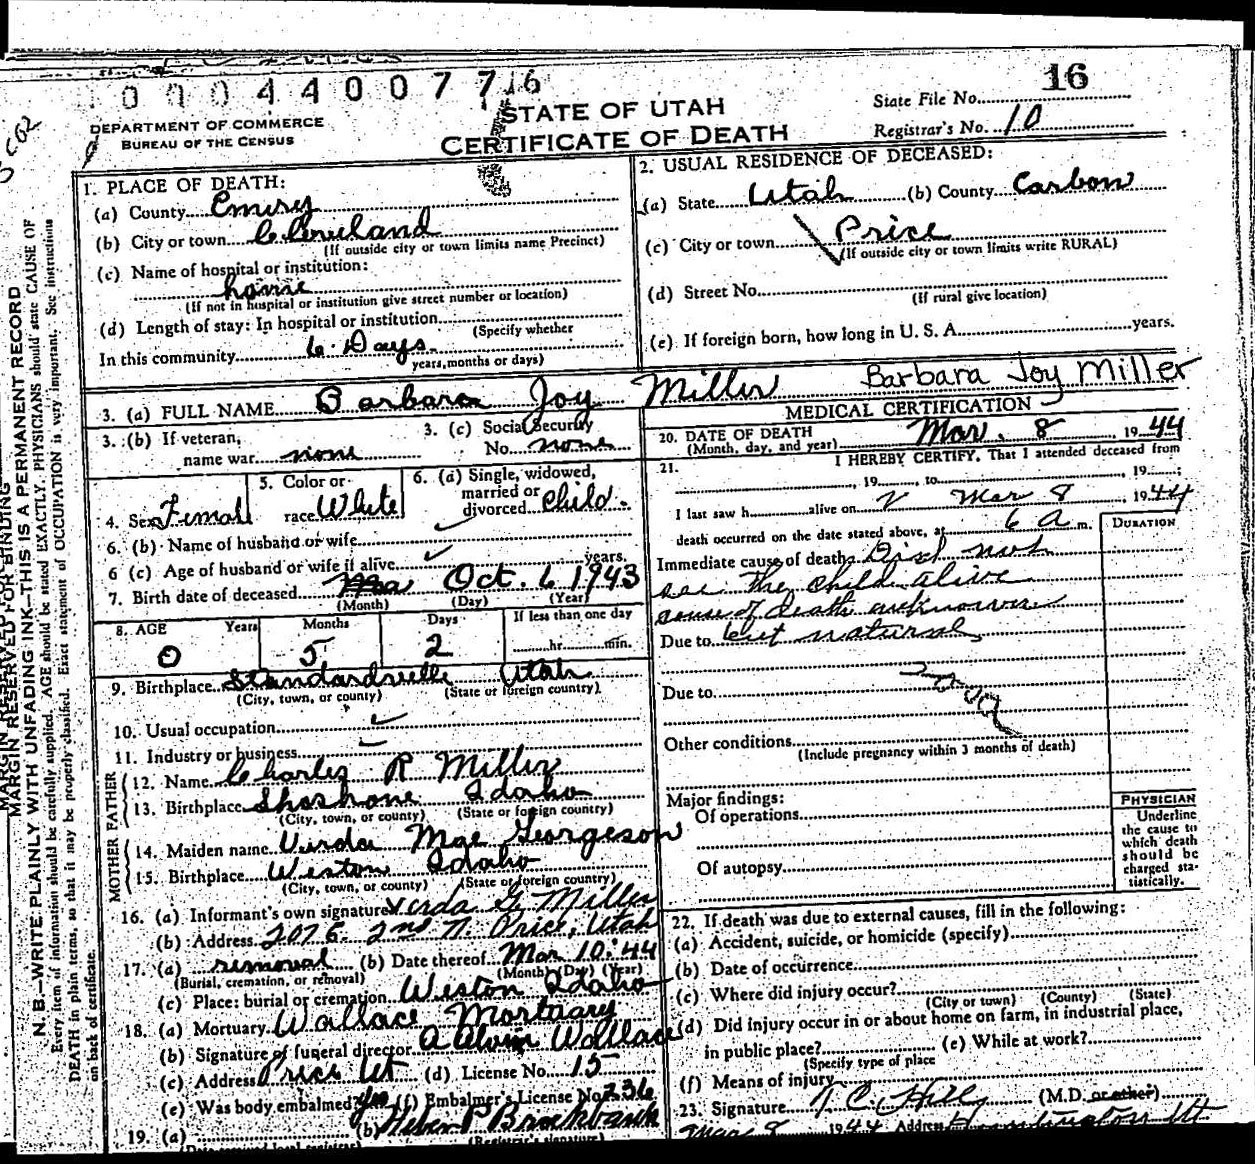 0 0 0 4 4 0 0 7 7 16
16
STATE OF UTAH
CERTIFICATE OF DEATH
DEPARTMENT OF COMMERCE
BUREAU OF THE CENSUS
State File No.
Registrar's No. 10
MARGIN RESERVED FOR BINDING
N. B.—WRITE PLAINLY WITH UNFADING INK—THIS IS A PERMANENT RECORD
Every item of information should be carefully supplied. AGE should be stated EXACTLY. PHYSICIANS should state CAUSE OF
DEATH in plain terms, so that it may be properly classified. Exact statement of OCCUPATION is very important. See instructions
on back of certificate.
1. PLACE OF DEATH:
(a) County Emery
(b) City or town Cleveland
(If outside city or town limits name Precinct)
(c) Name of hospital or institution:
home
(If not in hospital or institution give street number or location)
(d) Length of stay: In hospital or institution
(Specify whether
In this community 6 Days.
years, months or days)
2. USUAL RESIDENCE OF DECEASED:
(a) State Utah (b) County Carbon
(c) City or town Price
(If outside city or town limits write RURAL)
(d) Street No.
(If rural give location)
(e) If foreign born, how long in U. S. A. years.
3. (a) FULL NAME Barbara Joy Miller Barbara Joy Miller
3. (b) If veteran,
name war none
3. (c) Social Security
No. none
4. Sex Femal
5. Color or
race White
6. (a) Single, widowed,
married or
divorced child.
6. (b) Name of husband or wife
6 (c) Age of husband or wife if alive years.
7. Birth date of deceased Oct. 6 1943
(Month) (Day) (Year)
8. AGE Years Months Days If less than one day
0 5 2 hr. min.
9. Birthplace Standardville Utah
(City, town, or county) (State or foreign country)
10. Usual occupation
11. Industry or business
MOTHER FATHER
12. Name Charles R Miller
13. Birthplace Shoshone Idaho
(City, town, or county) (State or foreign country)
14. Maiden name Verda Mae Georgeson
15. Birthplace Weston Idaho
(City, town, or county) (State or foreign country)
16. (a) Informant's own signature Verda G Miller
(b) Address 207 E. 2nd N. Price, Utah
17. (a) removal (b) Date thereof Mar 10 '44
(Burial, cremation, or removal) (Month) (Day) (Year)
(c) Place: burial or cremation Weston Idaho
18. (a) Mortuary Wallace Mortuary
(b) Signature of funeral director A Alvin Wallace
(c) Address Price Ut (d) License No. 15
(e) Was body embalmed? yes (f) Embalmer's License No. 236
19. (a) (b) Heber P Brockbank
(Registrar's signature)
MEDICAL CERTIFICATION
20. DATE OF DEATH Mar. 8, 1944
(Month, day, and year)
21. I HEREBY CERTIFY, That I attended deceased from
, 19 , to , 19 ;
I last saw h alive on Mar 8, 1944
death occurred on the date stated above, at 6 a m.
DURATION
Immediate cause of death Did not
see the child alive
cause of death unknown
Due to but natural
Due to
Other conditions
(Include pregnancy within 3 months of death)
Major findings:
Of operations
Of autopsy
PHYSICIAN
Underline
the cause to
which death
should be
charged sta-
tistically.
22. If death was due to external causes, fill in the following:
(a) Accident, suicide, or homicide (specify)
(b) Date of occurrence
(c) Where did injury occur?
(City or town) (County) (State)
(d) Did injury occur in or about home on farm, in industrial place,
in public place? (e) While at work?
(Specify type of place
(f) Means of injury
23. Signature T C Hill (M.D. or other)
Mar 8 1944 Address Huntington Ut